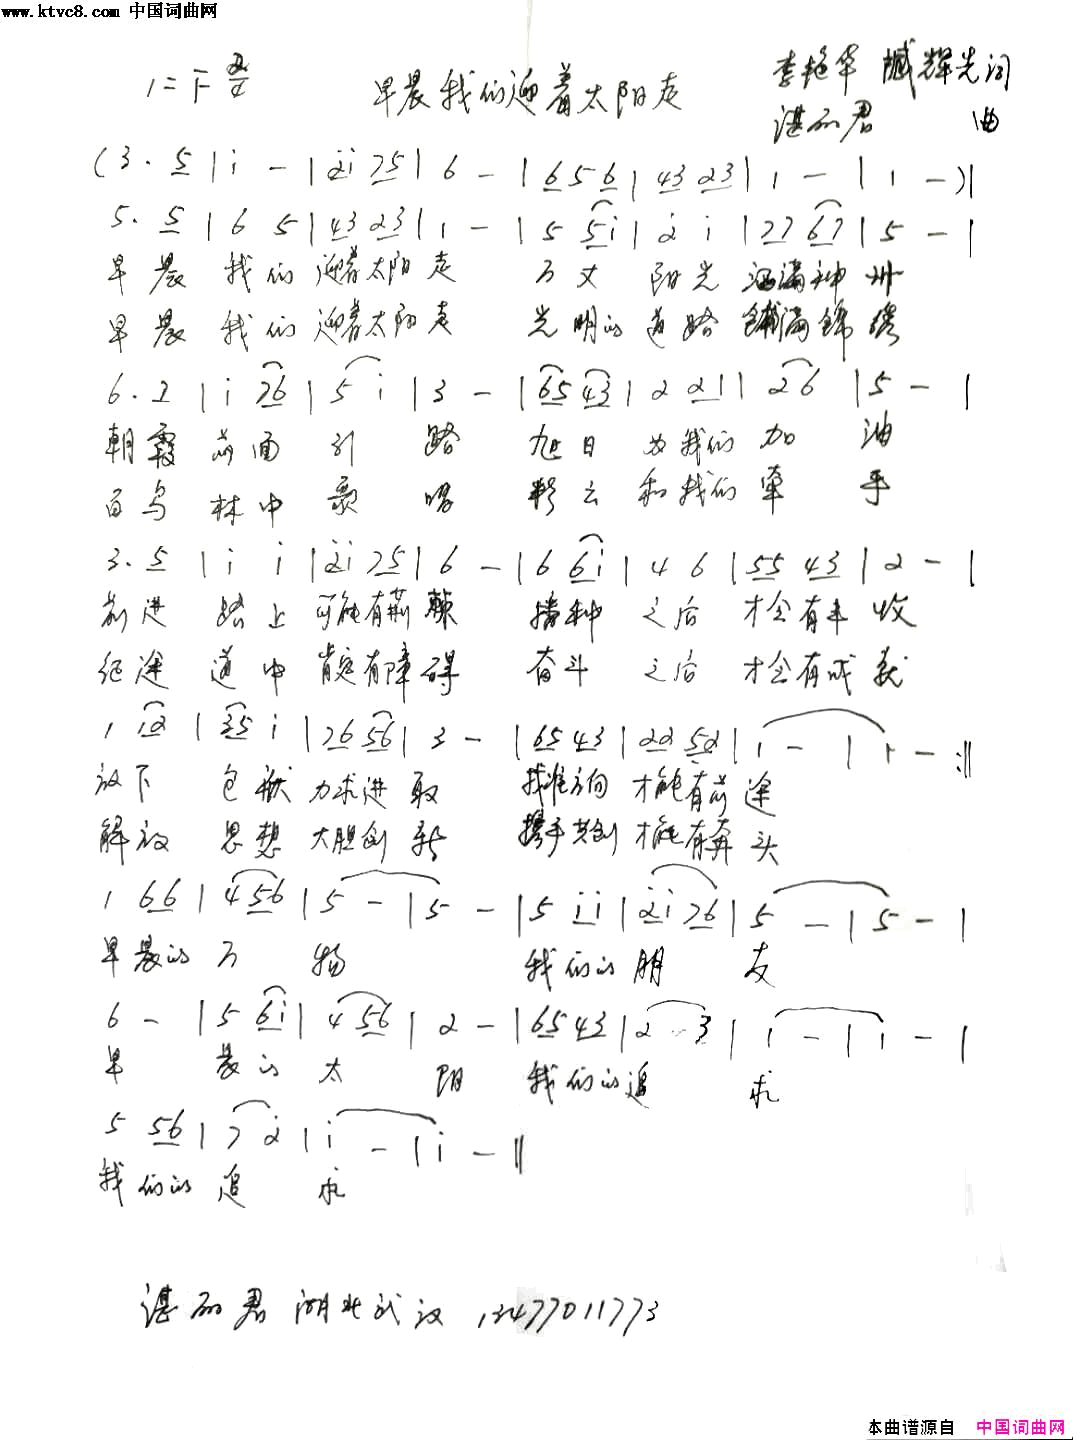 www.ktvc8.com 中国词曲网
1=F 2/4
早晨我们迎着太阳走
李艳华 臧辉光词
谌丽君 曲
(3. 5 | i - | 2i 75 | 6 - | 656 | 43 23 | 1 - | 1 -)|
5. 5 | 6 5 | 43 23 | 1 - | 5 5i | 2 i | 77 67 | 5 - |
早晨 我们 迎着太阳走 万丈 阳光 洒满神州
早晨 我们 迎着太阳走 光明的道路 铺满锦绣
6. 2 | i 76 | 5 i | 3 - | 65 43 | 2 21 | 26 | 5 - |
朝霞 前面 引路 旭日 为我们加油
百鸟 林中 歌唱 彩云 和我们牵手
3. 5 | i i | 2i 75 | 6 - | 6 6i | 4 6 | 55 43 | 2 - |
前进 路上 可能有荆棘 播种 之后 才会有丰收
征途 道中 肯定有障碍 奋斗 之后 才会有成就
1 12 | 35 i | 76 56 | 3 - | 65 43 | 22 52 | 1 - | 1 - :||
放下 包袱 力求进取 找准方向 才能有前途
解放 思想 大胆创新 携手共创 才能有奔头
1 66 | 4 56 | 5 - | 5 - | 5 ii | 2i 76 | 5 - | 5 - |
早晨的万物 我们的朋友
6 - | 5 6i | 4 56 | 2 - | 65 43 | 2 3 | 1 - | 1 - |
早 晨的 太阳 我们的追 求
5 56 | 7 2 | i - | i - ||
我们的 追 求
谌丽君 湖北武汉 13477011773
本曲谱源自 中国词曲网